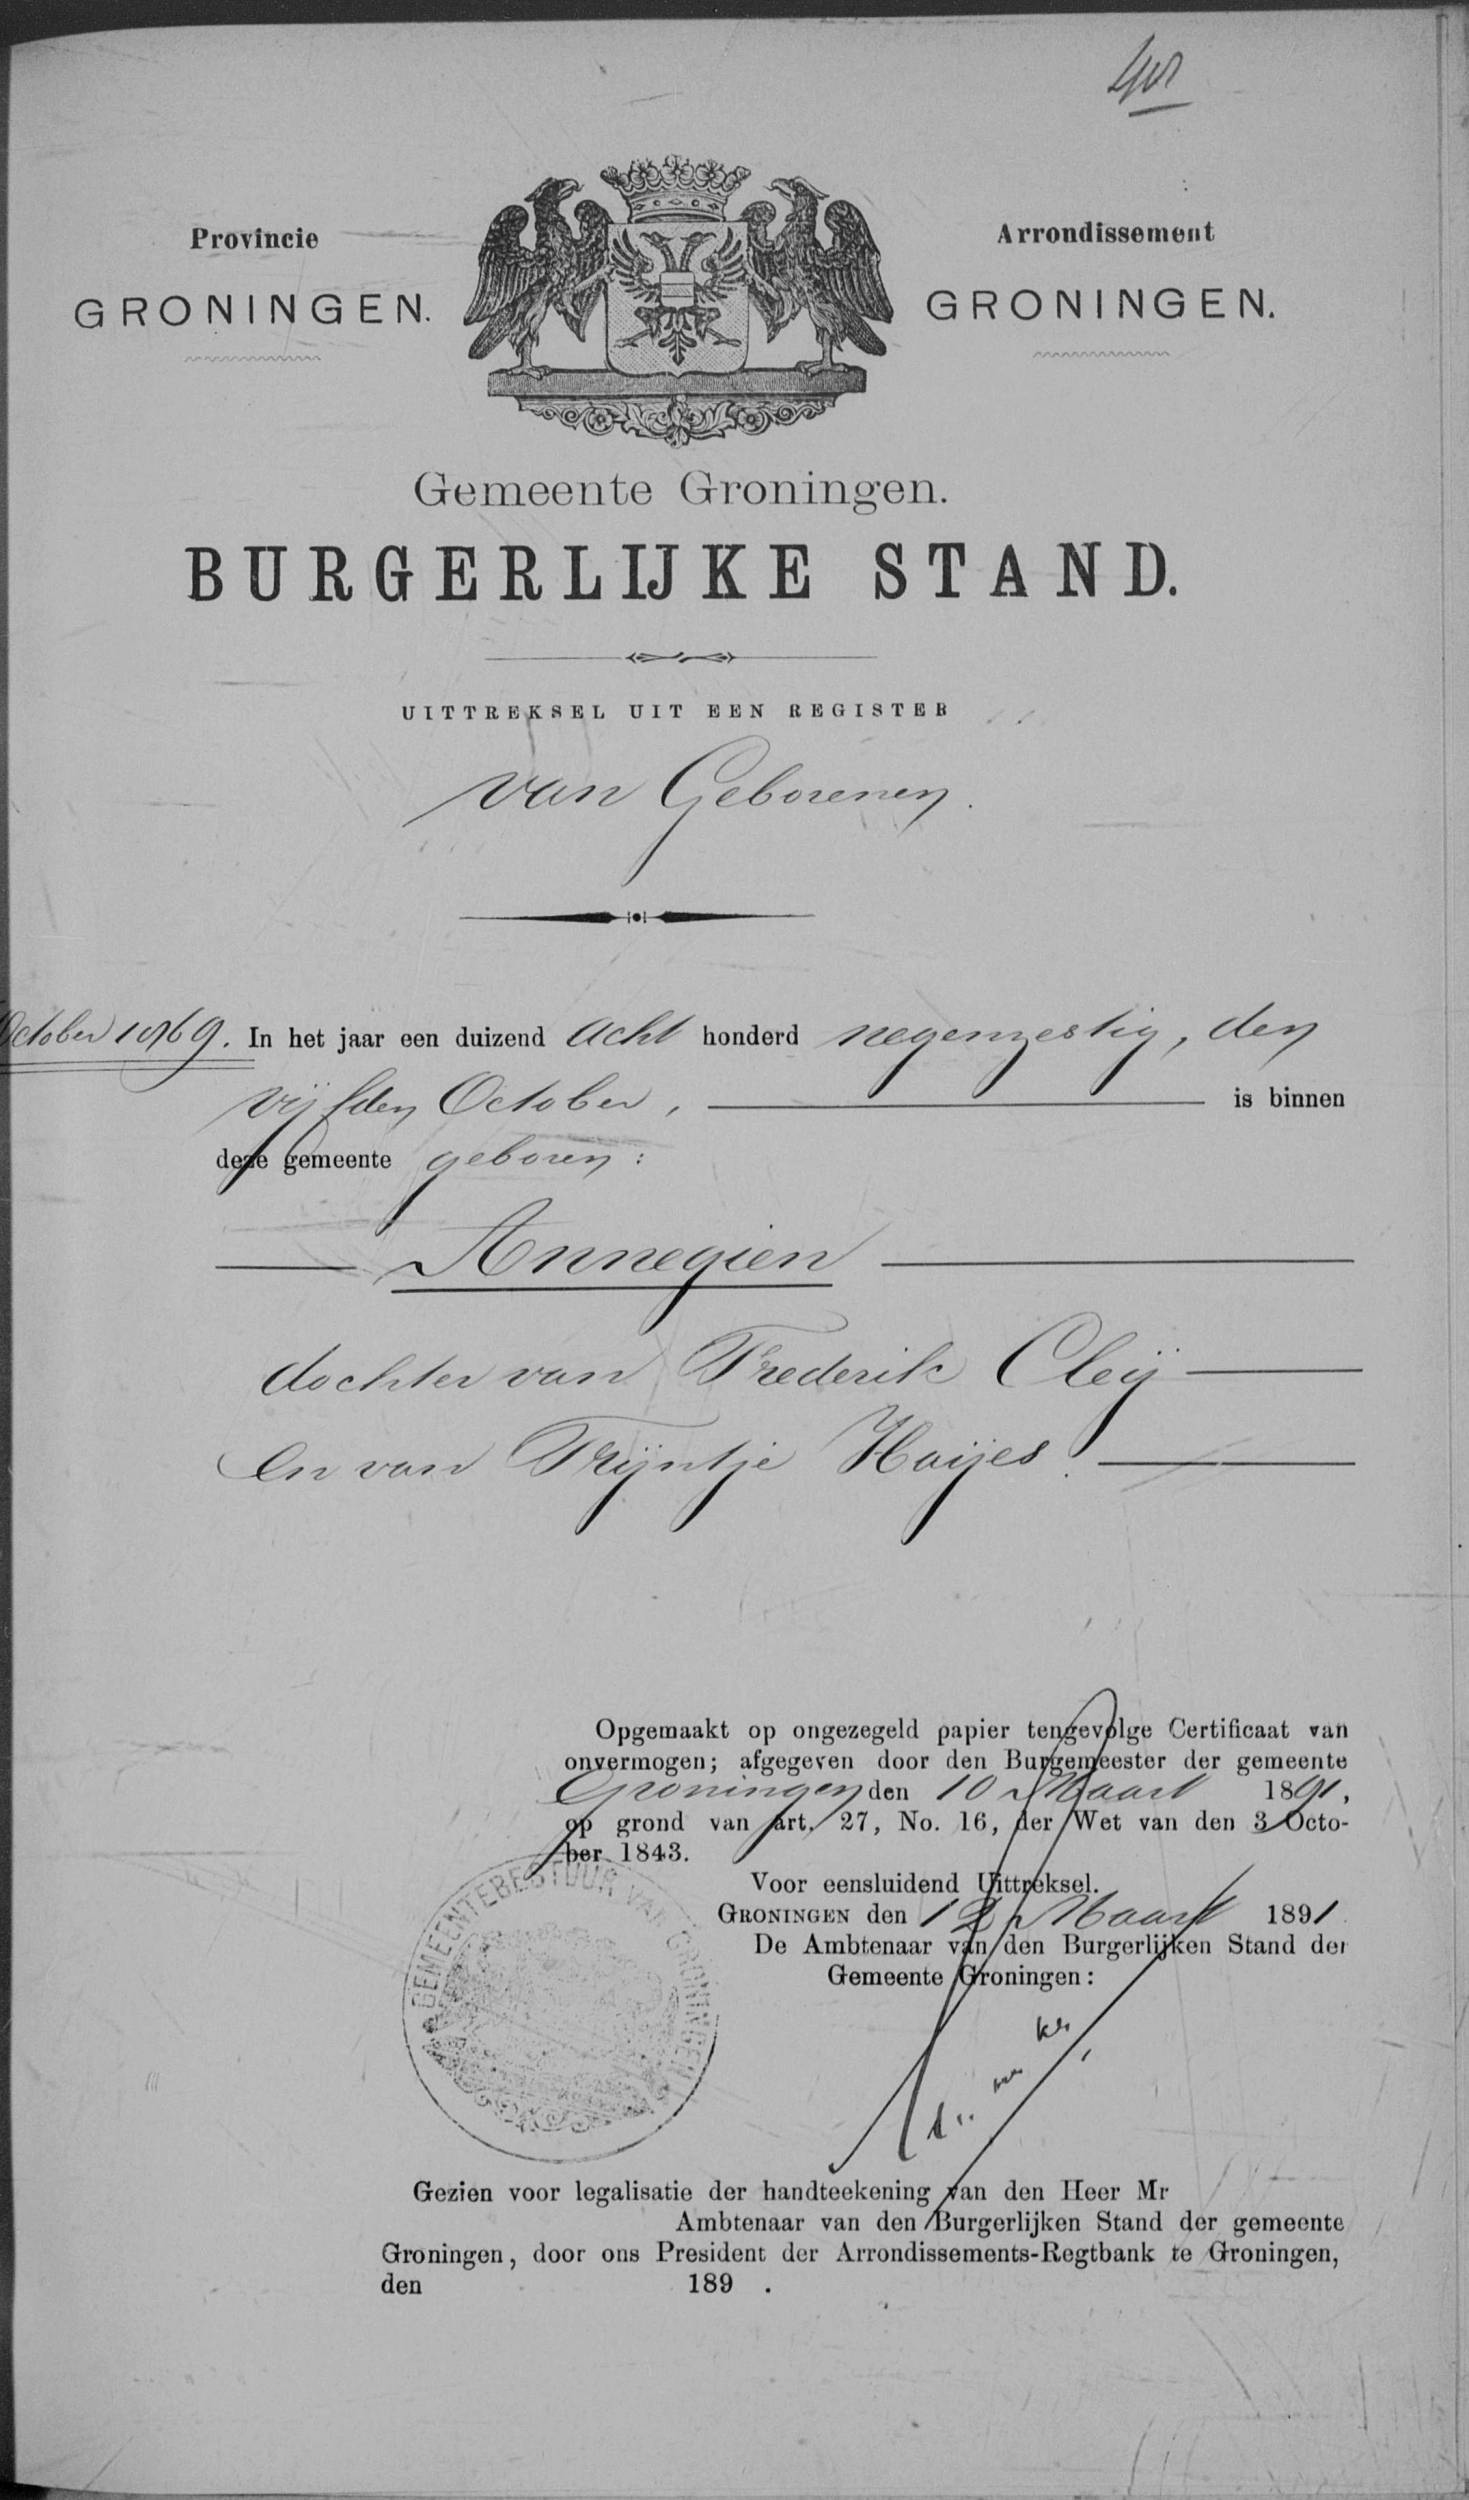 Provincie
GRONINGEN.
Arrondissement
GRONINGEN.
Gemeente Groningen.
BURGERLIJKE STAND.
UITTREKSEL UIT EEN REGISTER
van Geborenen.
October 1869. In het jaar een duizend acht honderd negenzestig, den
vijfden October, is binnen
deze gemeente geboren:
Annegien
dochter van Frederik Cleij
en van Trijntje Haijes.
Opgemaakt op ongezegeld papier tengevolge Certificaat van
onvermogen; afgegeven door den Burgemeester der gemeente
Groningen den 10 Maart 1891,
op grond van art. 27, No. 16, der Wet van den 3 Octo-
ber 1843.
Voor eensluidend Uittreksel.
GRONINGEN den 12 Maart 1891
De Ambtenaar van den Burgerlijken Stand der
Gemeente Groningen:
GEMEENTEBESTUUR VAN GRONINGEN
Gezien voor legalisatie der handteekening van den Heer Mr
Ambtenaar van den Burgerlijken Stand der gemeente
Groningen, door ons President der Arrondissements-Regtbank te Groningen,
den 189 .